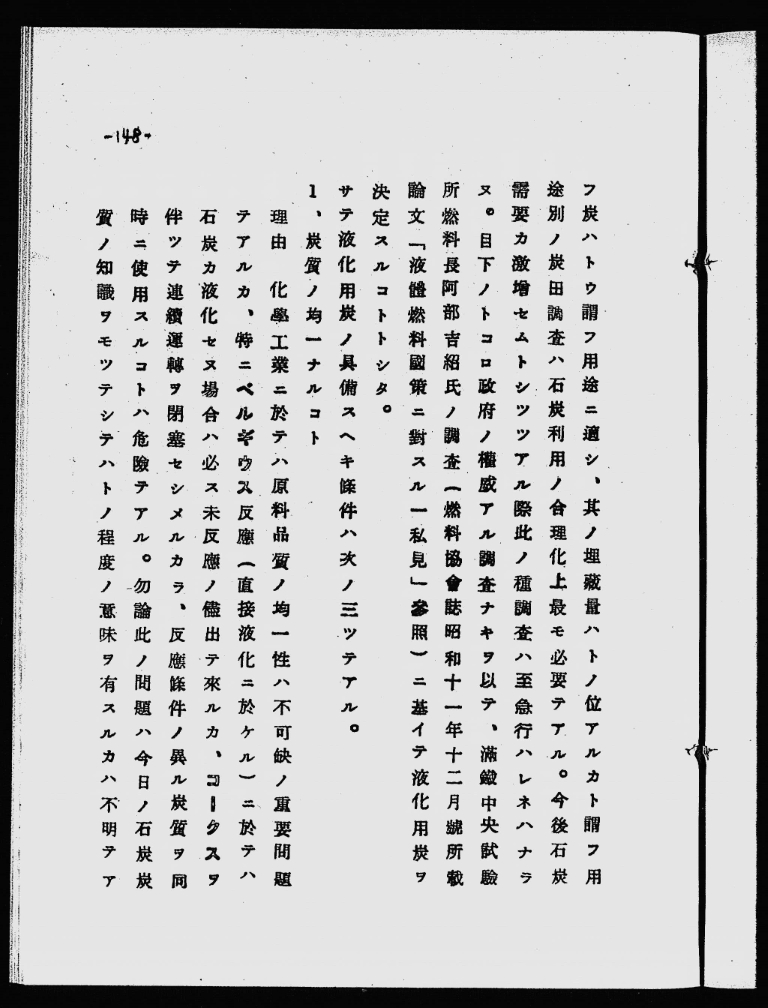 -148-
フ炭ハトウ謂フ用途ニ適シ、其ノ埋藏量ハトノ位アルカト謂フ用
途別ノ炭田調査ハ石炭利用ノ合理化上最モ必要テアル。今後石炭
需要カ激增セムトシツツアル際此ノ種調査ハ至急行ハレネハナラ
ヌ。目下ノトコロ政府ノ權威アル調査ナキヲ以テ、滿鐵中央試驗
所燃料長阿部吉紹氏ノ調査(燃料協會誌昭和十一年十二月號所載
論文「液體燃料國策ニ對スル一私見」參照)ニ基イテ液化用炭ヲ
決定スルコトトシタ。
サテ液化用炭ノ具備スヘキ條件ハ次ノ三ツテアル。
1、炭質ノ均一ナルコト
理由 化學工業ニ於テハ原料品質ノ均一性ハ不可缺ノ重要問題
テアルカ、特ニベルギウス反應(直接液化ニ於ケル)ニ於テハ
石炭カ液化セヌ場合ハ必ス未反應ノ儘出テ來ルカ、コークスヲ
伴ツテ連續運轉ヲ閉塞セシメルカラ、反應條件ノ異ル炭質ヲ同
時ニ使用スルコトハ危險テアル。勿論此ノ問題ハ今日ノ石炭炭
質ノ知識ヲモツテシテハトノ程度ノ意味ヲ有スルカハ不明テア